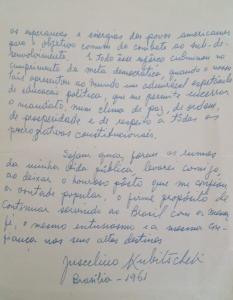 as esperanças e energias dos povos americanos
para o objetivo comum do combate ao sub-de-
senvolvimento. E todo esse esforço culminou no
cumprimento da meta democrática, quando o nosso
país apresentou ao mundo um admirável espetáculo
de educação política, que me permite encerrar
o mandato, num clima de paz, de ordem,
de prosperidade e de respeito a todas as
prerrogativas constitucionais.
Sejam quais forem os rumos
da minha vida pública, levarei comigo,
ao deixar o honroso posto que me confiou
a vontade popular, o firme propósito de
continuar servindo ao Brasil com a mesma
fé, o mesmo entusiasmo e a mesma con-
fiança nos seus altos destinos
Juscelino Kubitschek
Brasília - 1961